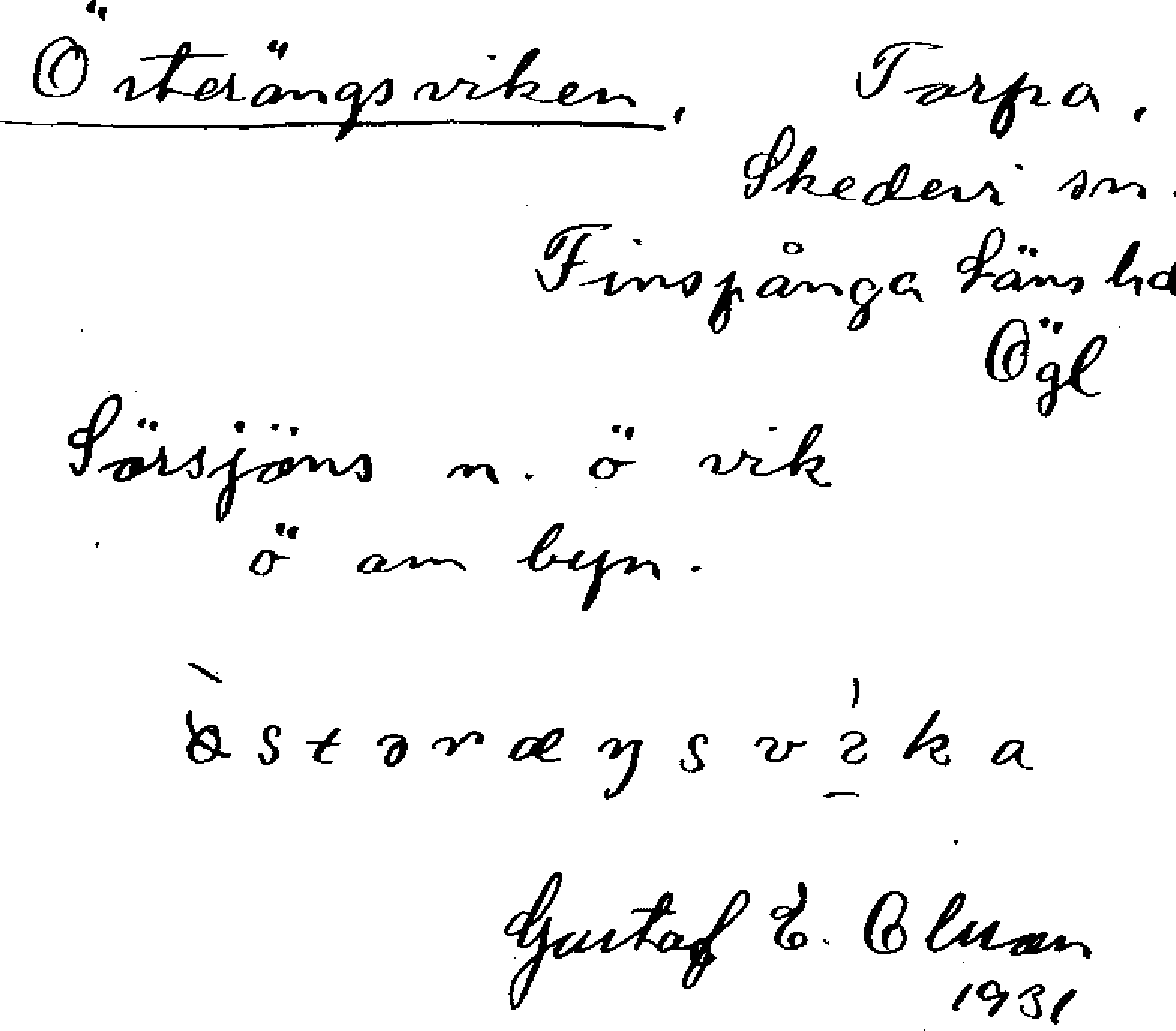 Österängsviken. Torpa.
Skedevi sn.
Finspånga läns hd
Ögl
Sörsjöns n. ö vik
ö om byn.
östəræŋsvika
Gustaf E. Olsson
1931